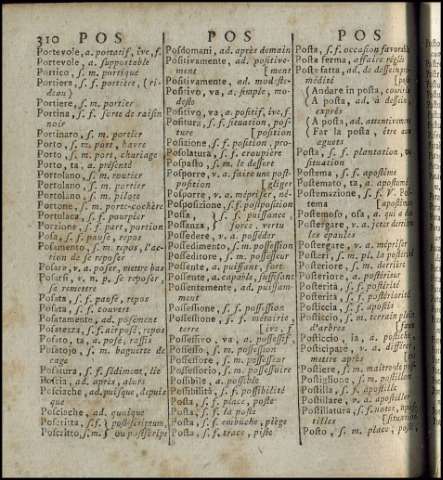 310 POS
POS
POS
Portevole, a. portatif, ive, f.
Portevole, a. supportable
Portico, s. m. portique
Portiera, s. f. portiére, (ri-
deau)
Portiere, s. m. portier
Portina, s. f. sorte de raisin
noir
Portinaro, s. m. portier
Porto, s. m. port, havre
Porto, s. m. port, chariage
Porto, ta, a. présenté
Portolano, s. m. routier
Portolano, s. m. portier
Portolano, s. m. pilote
Portone, s. m. porte-cochére
Portulaca, s. f. pourpier
Porzione, s. f. part, portion
Posa, s. f. pause, repos
Posamento, s. m. repos, l'ac-
tion de se reposer
Posare, v. a. poser, mettre bas
Posarsi, v. n. p. se reposer,
se remettre
Posata, s. f. pause, repos
Posata, s. f. couvert
Posatamente, ad. posément
Posatezza, s. f. air posé, repos
Posato, ta, a. posé, rassis
Posatojo, s. m. baguette de
cage
Posatura, s. f. sédiment, lie
Poscia, ad. après, alors
Posciache, ad. puisque, depuis
que
Posciache, ad. quoique
Poscritta, s. f. } postscriptum,
Poscritto, s. m. } ou postscripe
Posdomani, ad. après demain
Positivamente, ad. positive-
ment
Positivamente, ad. modeste- [ment
Positivo, va, a. simple, mo-
deste
Positivo, va, a. positif, ive, f.
Positura, s. f. situation, pos-
ture [position
Posizione, s. f. position, pro-
Posolatura, s. f. croupiére
Pospasto, s. m. le dessert
Posporre, v. a. faire une post-
position [gliger
Posporre, v. a. mépriser, né-
Posposizione, s. f. postposition
Possa, } s. f. puissance,
Possanza, } force, vertu
Possedere, v. a. posséder
Possedimento, s. m. possession
Possedittore, s. m. possesseur
Possente, a. puissant, fort
Possente, a. capable, suffisant
Possentemente, ad. puissam-
ment
Possessione, s. f. possession
Possessione, s. f. métairie,
terre [ive, f.
Possessivo, va, a. possessif,
Possesso, s. m. possession
Possessore, s. m. possesseur
Possessorio, s. m. possessoire
Possibile, a. possible
Possibilità, s. f. possibilité
Posta, s. f. place, poste
Posta, s. f. la poste
Posta, s. f. embuche, piége
Posta, s. f. trace, piste
Posta, s. f. occasion favorable
Posta ferma, affaire réglée
Posta fatta, ad. de dessein pré-
médité [pos
(Andare in posta, courir la
(A posta, ad. à dessein,
exprès
(A posta, ad. attentivement
(Far la posta, être aux
aguets
Posta, s. f. plantation,
situation
Postema, s. f. apostême
Postemato, ta, a. apostemé
Postemazione, s. f. V. Pos-
tema [apostême
Postemoso, osa, a. qui a
Postergare, v. a. jeter derriere
les épaules
Postergare, v. a. mépriser
Posteri, s. m. pl. la postérité
Posteriore, s. m. derriere
Posteriore, a. postérieur
Posterità, s. f. postérité
Posteriorità, s. f. postériorité
Posticcia, s. f. apostis
Posticcio, s. m. terrain planté
d'arbres [faux
Posticcio, ia, a. postiche
Posticipare, v. a. différer,
mettre après
Postiere, s. m. maître de poste
Postiglione, s. m. postillon
Postilla, s. f. apostille
Postillare, v. a. apostiller
Postillatura, s. f. notes, apos-
tilles [situation
Posto, s. m. place, poste,